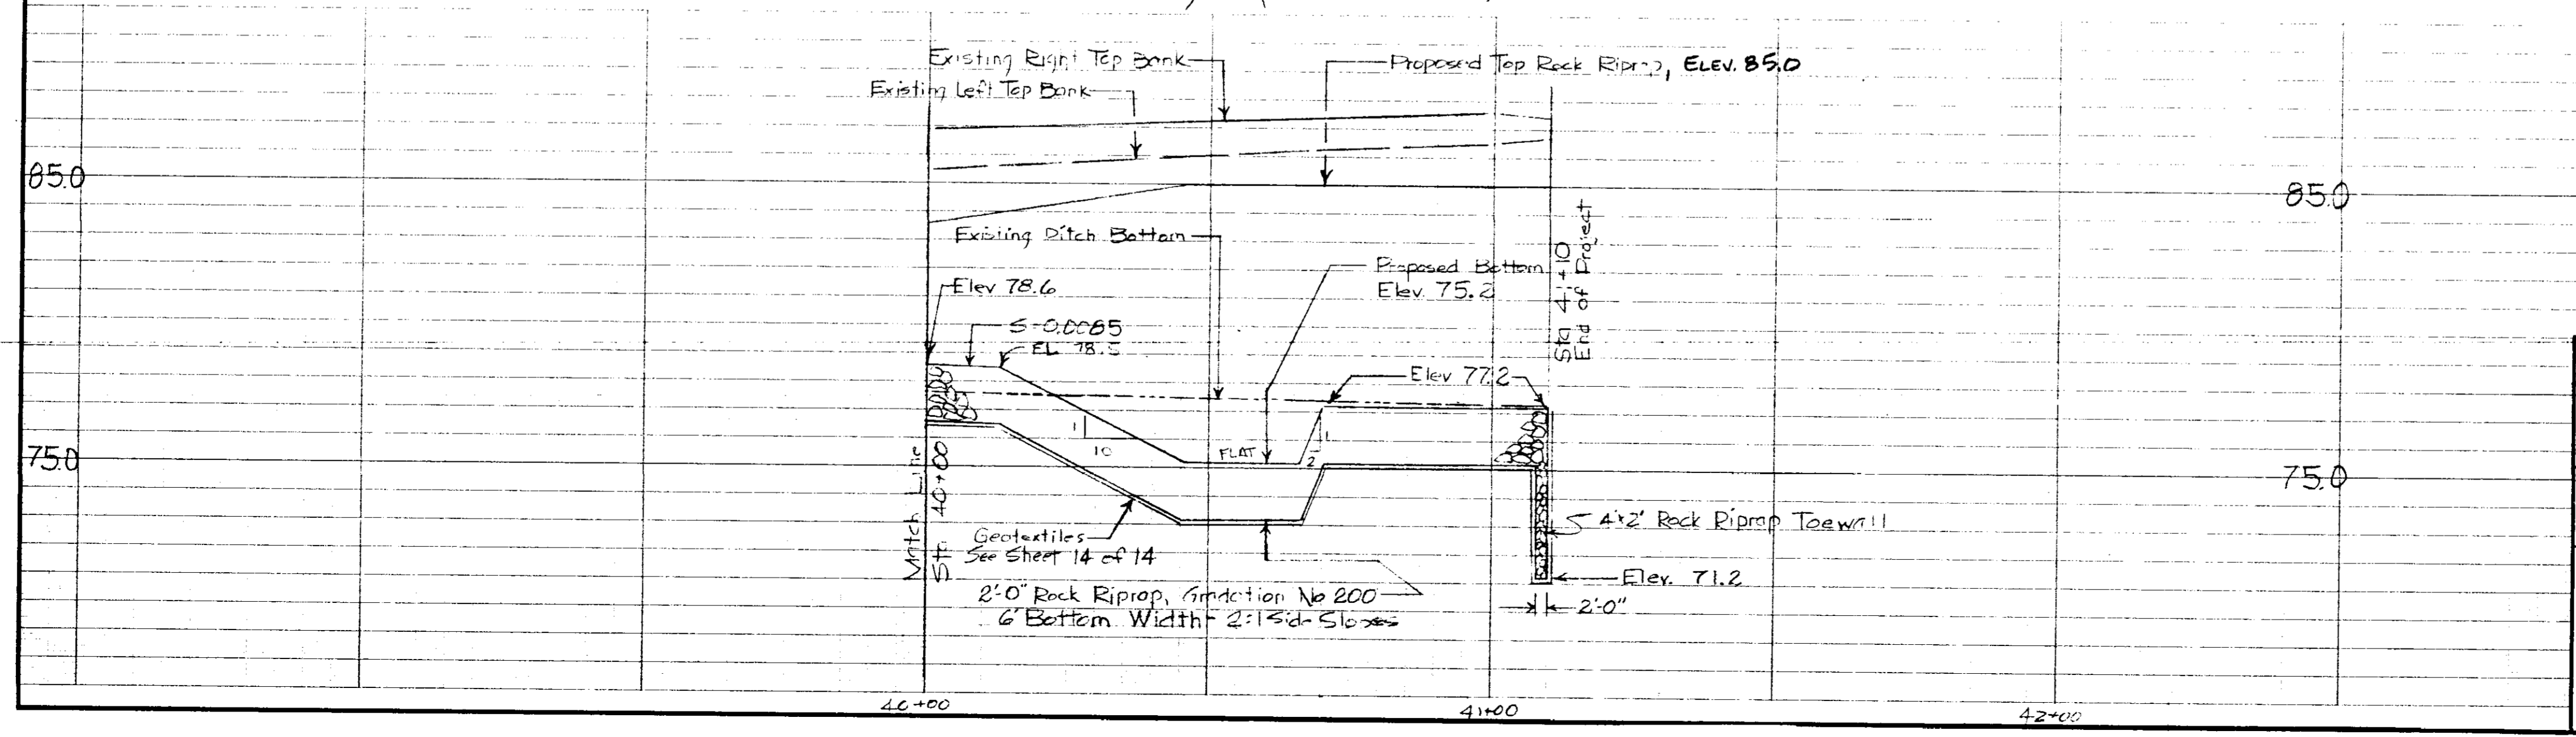 Existing Right Top Bank
Proposed Top Rock Riprap, ELEV. 85.0
Existing Left Top Bank
85.0
85.0
Existing Ditch Bottom
Proposed Bottom
Elev. 75.2
Sta 41+10
End of Project
Elev 78.6
S=0.0085
EL 78.5
Elev 77.2
1
10
FLAT
1
2
75.0
75.0
Match Line
Sta. 40+00
Geotextiles
See Sheet 14 of 14
4'x2' Rock Riprap Toewall
Elev. 71.2
2'-0" Rock Riprap, Gradation No 200
2'-0"
6' Bottom Width - 2:1 Side Slopes
40+00
41+00
42+00